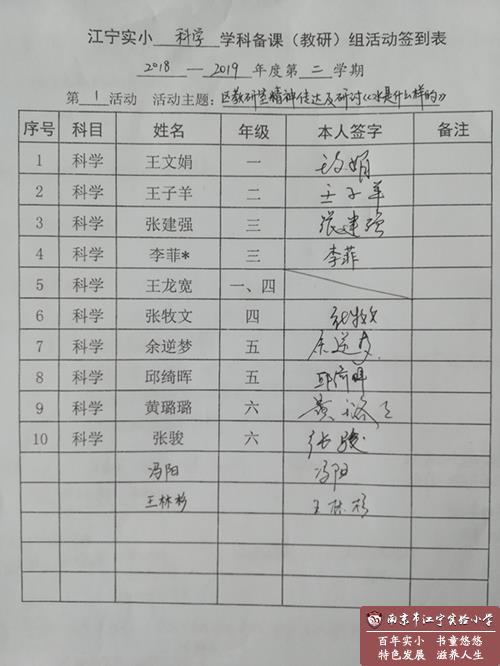 江宁实小 科学 学科备课（教研）组活动签到表
2018 — 2019 年度第 二 学期
第 1 活动 活动主题：区教研室精神传达及研讨《冰是什么样的》
序号 科目 姓名 年级 本人签字 备注
1 科学 王文娟 一
2 科学 王子羊 二 王子羊
3 科学 张建强 三 张建强
4 科学 李菲* 三 李菲
5 科学 王龙宽 一、四
6 科学 张牧文 四 张牧文
7 科学 余逆梦 五 余逆梦
8 科学 邱绮晖 五 邱绮晖
9 科学 黄璐璐 六 黄璐璐
10 科学 张骏 六 张骏
冯阳 冯阳
王林杉 王林杉
南京市江宁实验小学
百年实小 书童悠悠
特色发展 滋养人生